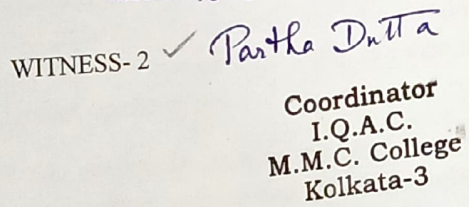 WITNESS- 2 ✓ Partha Dutta
Coordinator
I.Q.A.C.
M.M.C. College
Kolkata-3